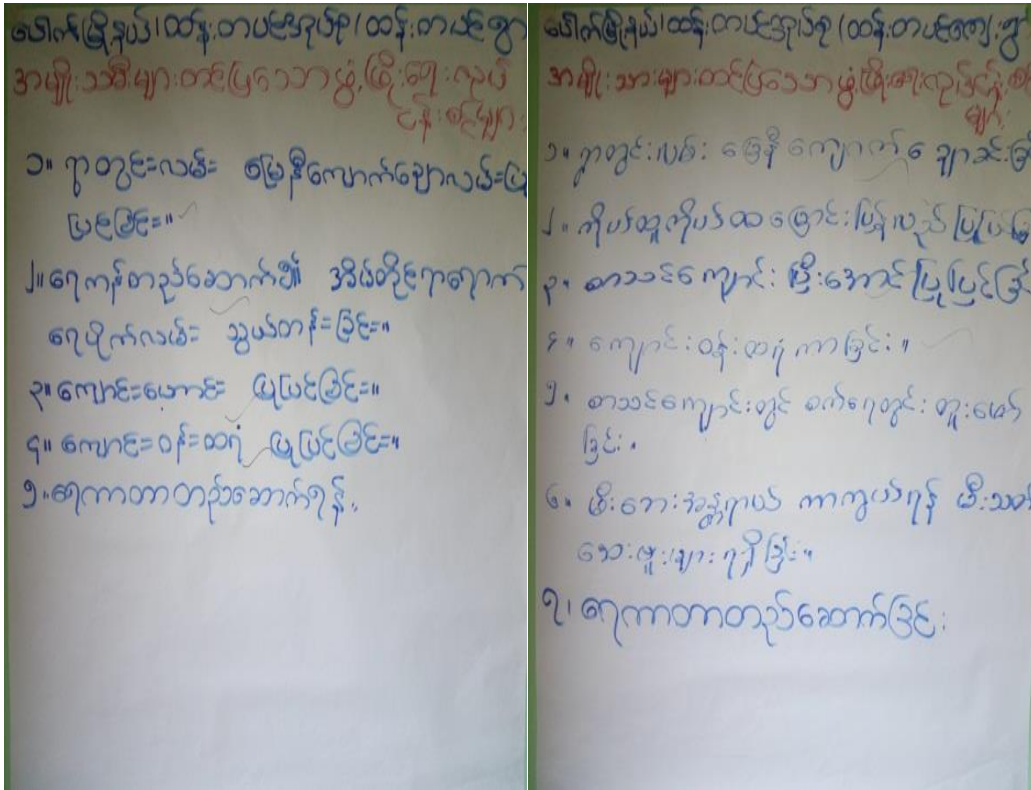 ပေါက်မြို့နယ်၊ ထန်းတပင်အုပ်စု (ထန်းတပင်ရွာ
အမျိုးသမီးများတင်ပြသောဖွံ့ဖြိုးရေးလုပ်
ငန်းစဉ်များ
၁။ ရွာတွင်းလမ်း မြေနီကျောက်ချောလမ်းပြု
ပြင်ခြင်း။
၂။ ရေကန်တည်ဆောက်၍ အိမ်တိုင်ရာရောက်
ရေပိုက်လမ်း သွယ်တန်းခြင်း။
၃။ ကျောင်းဟောင်း ပြုပြင်ခြင်း။
၄။ ကျောင်းဝန်းထရံ ပြုပြင်ခြင်း။
၅။ ရေကာတာတည်ဆောက်ရန်.
ပေါက်မြို့နယ်၊ ထန်းတပင်အုပ်စု (ထန်းတပင်ကျေးရွ
အမျိုးသားများတင်ပြသောဖွံ့ဖြိုးရေးလုပ်ငန်းစဉ်
များ
၁။ ရွာတွင်းလမ်း မြေနီကျောက်ချောခင်းခြ
၂။ ကိုပထူကိုပထ ပြန်လည်ပြုပြ
၃။ စာသင်ကျောင်း ပြီးအောင်ပြုပြင်ခြ
၄။ ကျောင်းဝန်းထရံကာခြင်း။
၅. စာသင်ကျောင်းတွင် စက်ရေတွင်း တူးဖော်
ခြင်း.
၆. မီးဘေးအန္တရာယ် ကာကွယ်ရန် မီးသတ်
ဆေးဗူးများရရှိခြင်း။
၇၊ ရေကာတာတည်ဆောက်ခြင်း